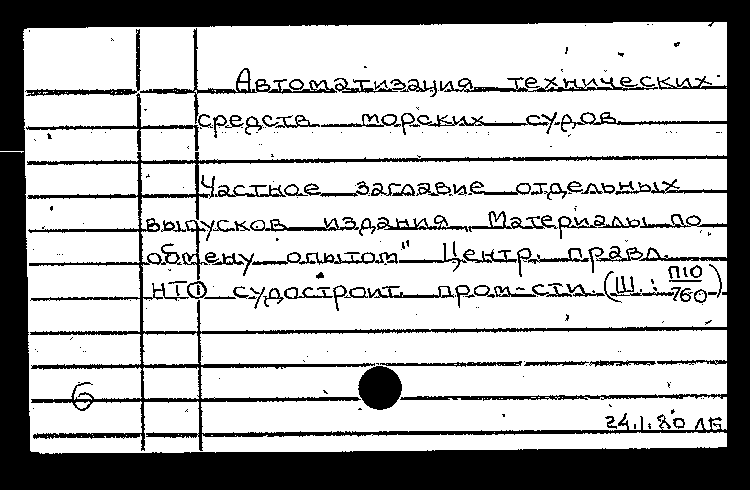 Автоматизация технических
средств морских судов
Частное заглавие отдельных
выпусков издания „Материалы по
обмену опытом" Центр. правл.
НТО судостроит. пром-сти. (Ш. : П10/760)
б
24.1.80 ЛБ